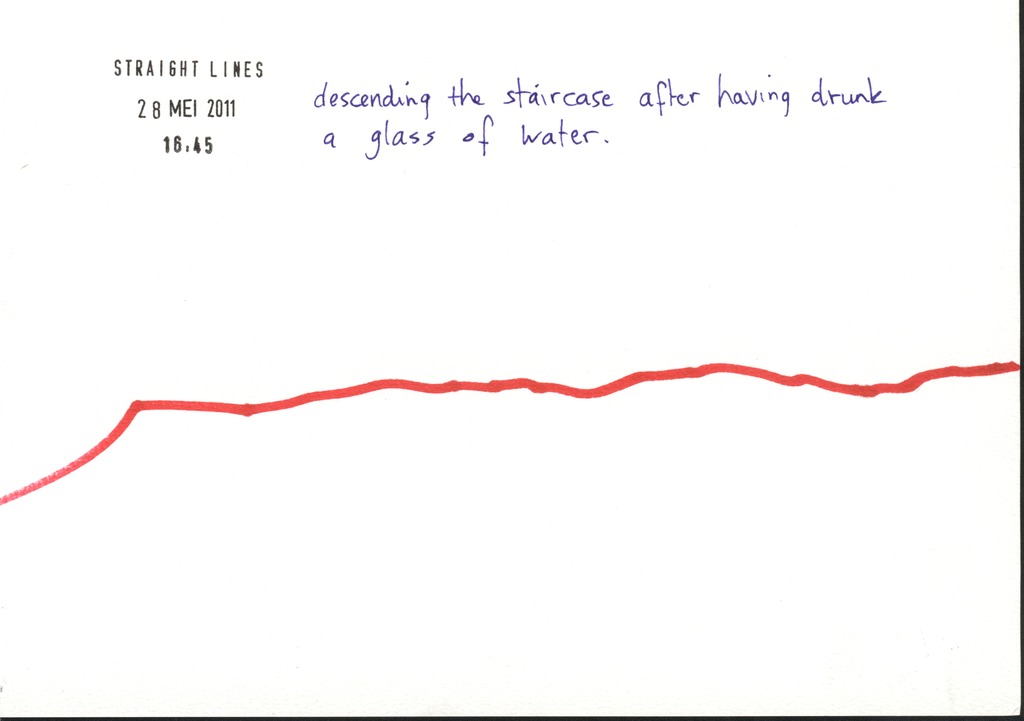 STRAIGHT LINES
28 MEI 2011
16.45
descending the staircase after having drunk
a glass of water.